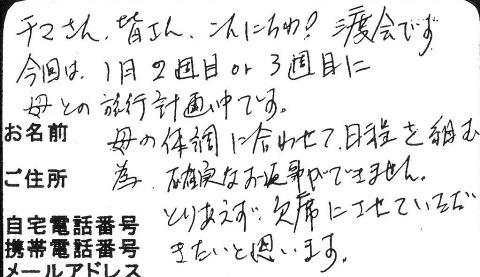 チマさん、皆さん、こんにちわ！渡会です
今回は、1月2週目or3週目に
母との旅行計画中です。
お名前 母の体調に合わせて、日程を組む
ご住所 為、確実なお返事ができません。
とりあえず、欠席にさせていただ
自宅電話番号
携帯電話番号 きたいと思います。
メールアドレス